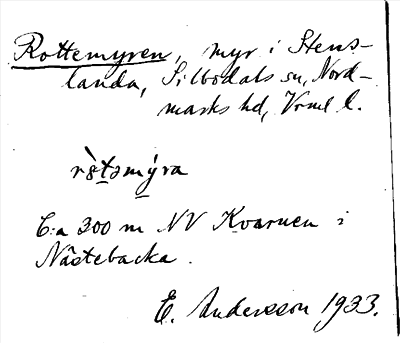 Rottemyren, myr i Stens-
landa, Silbodals sn, Nord-
marks hd, Vrml l.
rò̱ṯəmý̱ra
C:a 300 m NV Kvarnen i
Nästebacka.
E. Andersson 1933.